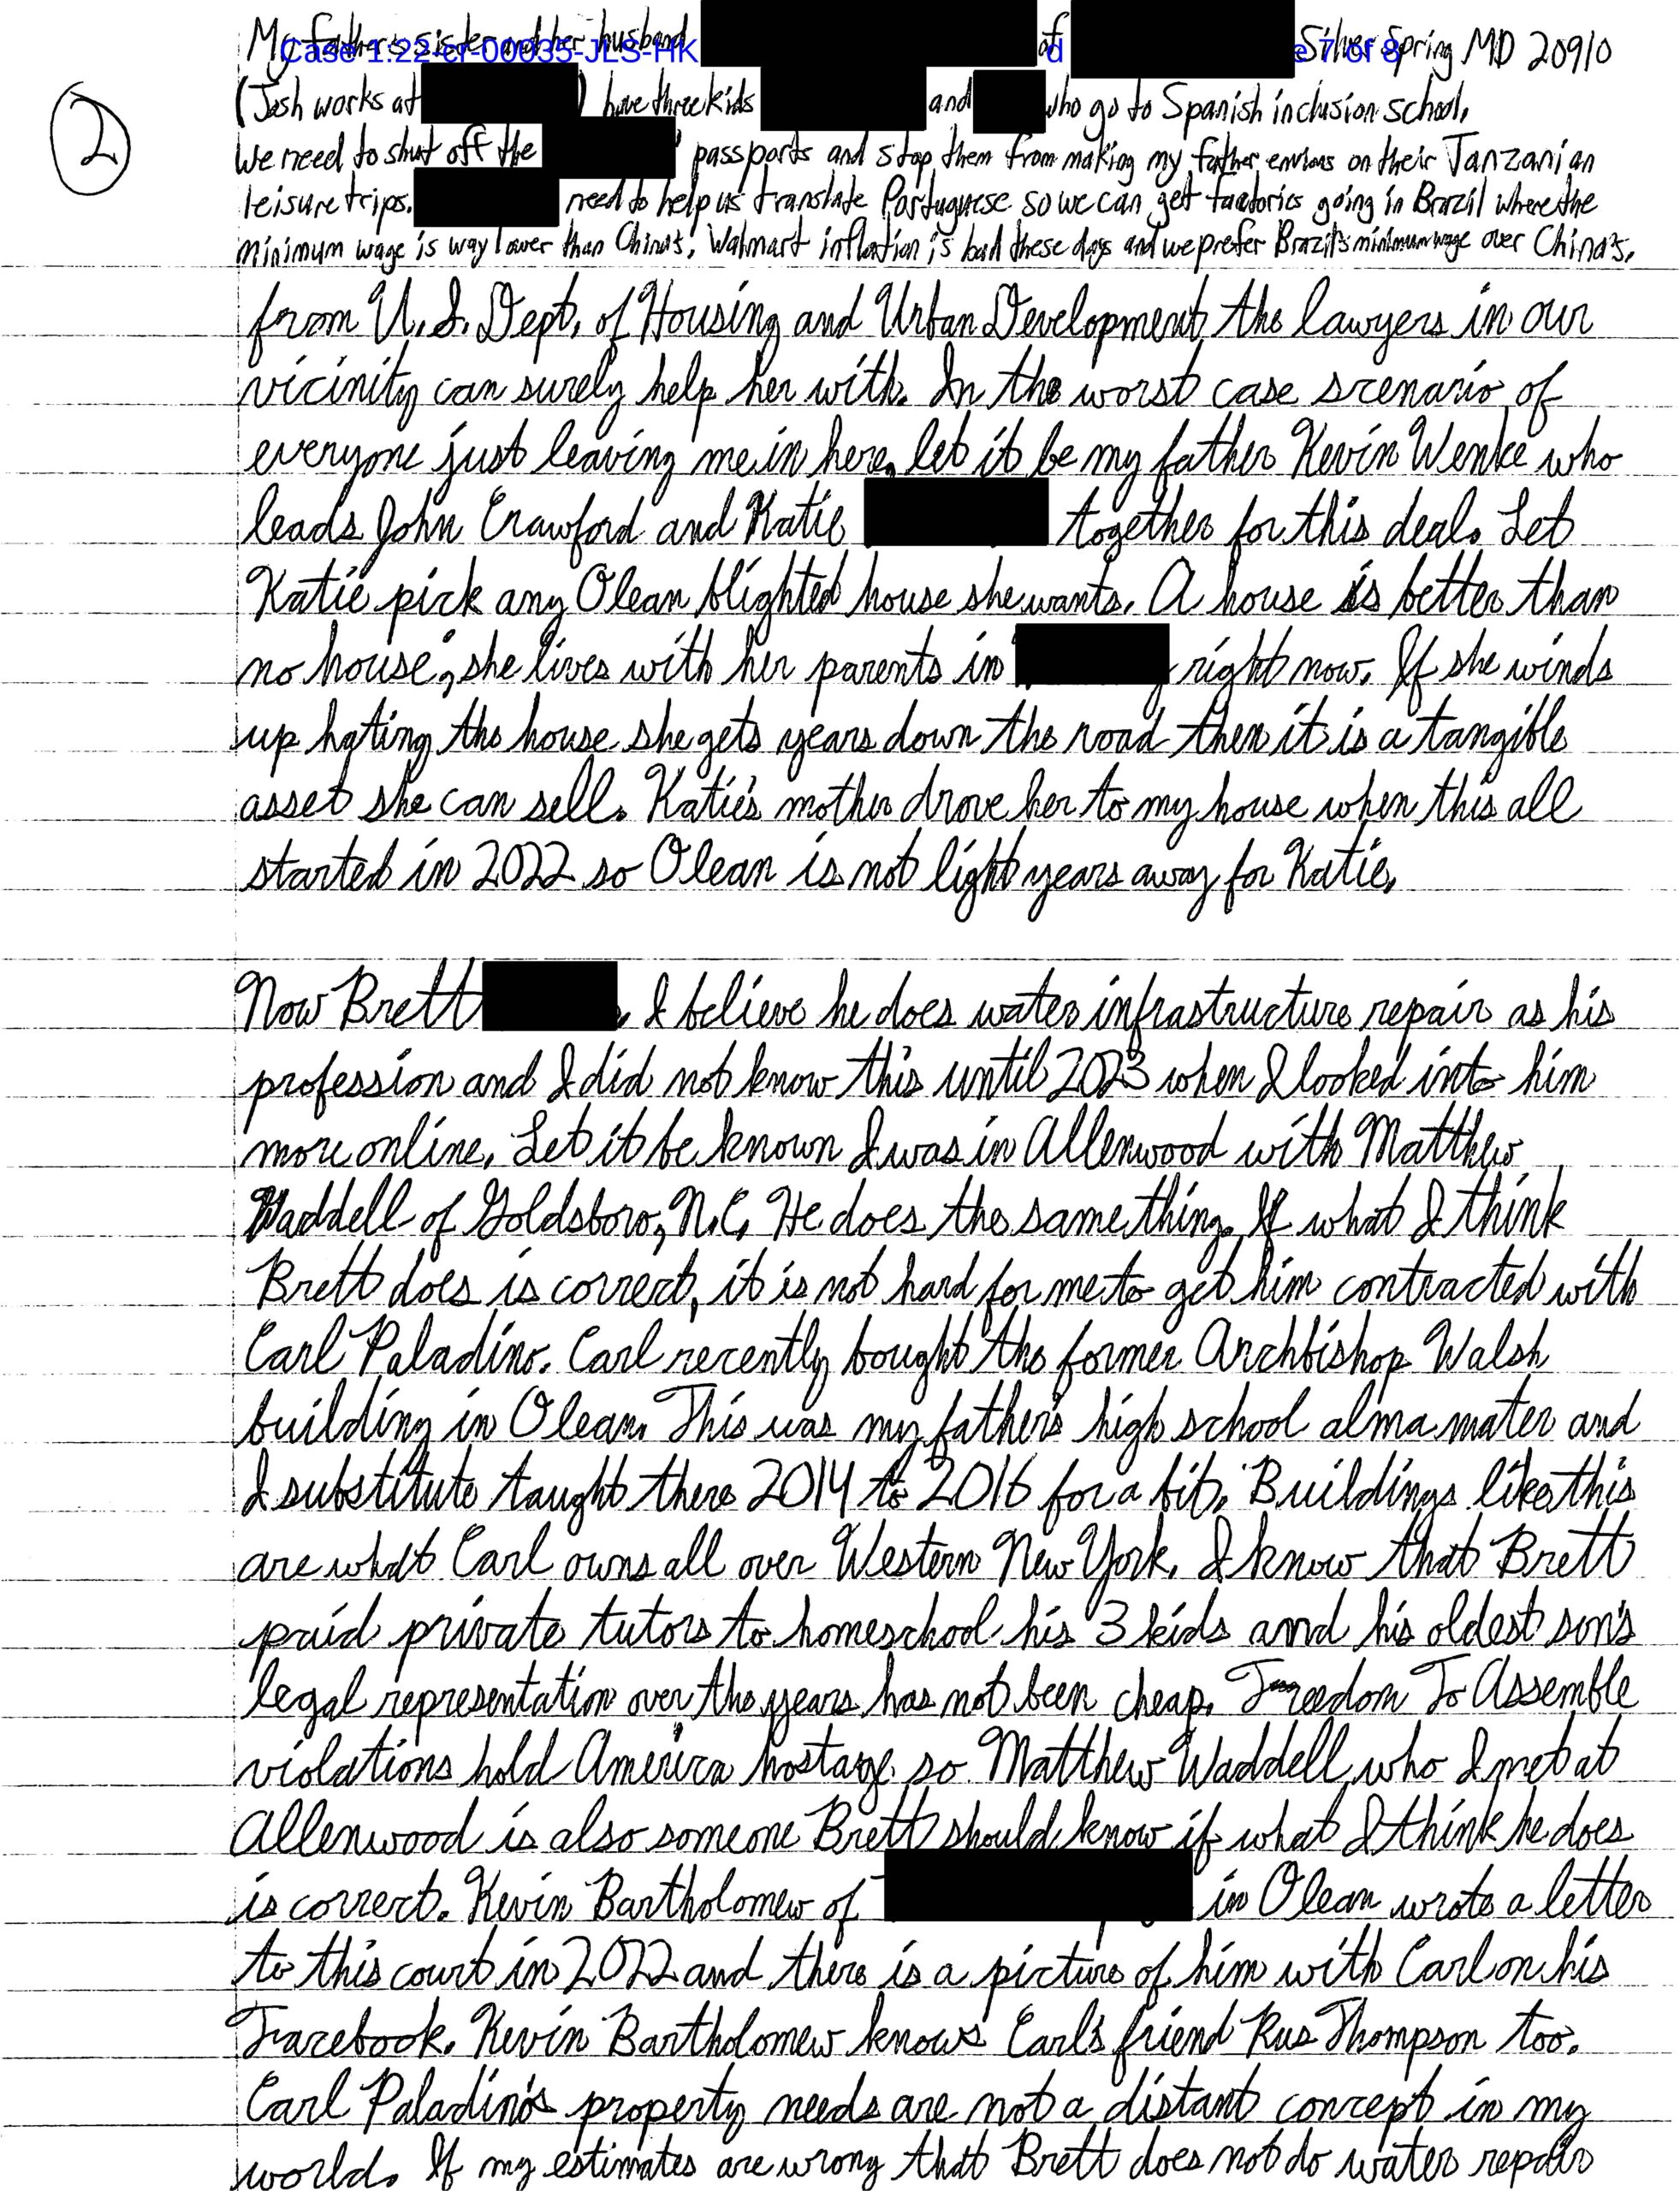 My father's sister and her husband of Silver Spring MD 20910
Case 1:22-cr-00035-JLS-HK d e 7 of 8
(Josh works at ) have three kids and who go to Spanish inclusion school.
2
We need to shut off the passports and stop them from making my father envious on their Tanzanian
leisure trips. need to help us translate Portuguese so we can get factories going in Brazil where the
minimum wage is way lower than China's. Walmart inflation is bad these days and we prefer Brazil's minimum wage over China's.
from U.S. Dept. of Housing and Urban Development the lawyers in our
vicinity can surely help her with. In the worst case scenario of
everyone just leaving me in here, let it be my father Kevin Wenke who
leads John Crawford and Katie together for this deal. Let
Katie pick any Olean blighted house she wants. A house is better than
no house; she lives with her parents in right now. If she winds
up hating the house she gets years down the road then it is a tangible
asset she can sell. Katie's mother drove her to my house when this all
started in 2022 so Olean is not light years away for Katie.
Now Brett , I believe he does water infrastructure repair as his
profession and I did not know this until 2023 when I looked into him
more online. Let it be known I was in Allenwood with Matthew
Waddell of Goldsboro, N.C. He does the same thing. If what I think
Brett does is correct, it is not hard for me to get him contracted with
Carl Paladino. Carl recently bought the former Archbishop Walsh
building in Olean. This was my father's high school alma mater and
I substitute taught there 2014 to 2016 for a bit. Buildings like this
are what Carl owns all over Western New York. I know that Brett
paid private tutors to homeschool his 3 kids and his oldest son's
legal representation over the years has not been cheap. Freedom To Assemble
violations hold America hostage so Matthew Waddell who I met at
Allenwood is also someone Brett should know if what I think he does
is correct. Kevin Bartholomew of in Olean wrote a letter
to this court in 2022 and there is a picture of him with Carl on his
Facebook. Kevin Bartholomew knows Carl's friend Rus Thompson too.
Carl Paladino's property needs are not a distant concept in my
world. If my estimates are wrong that Brett does not do water repair